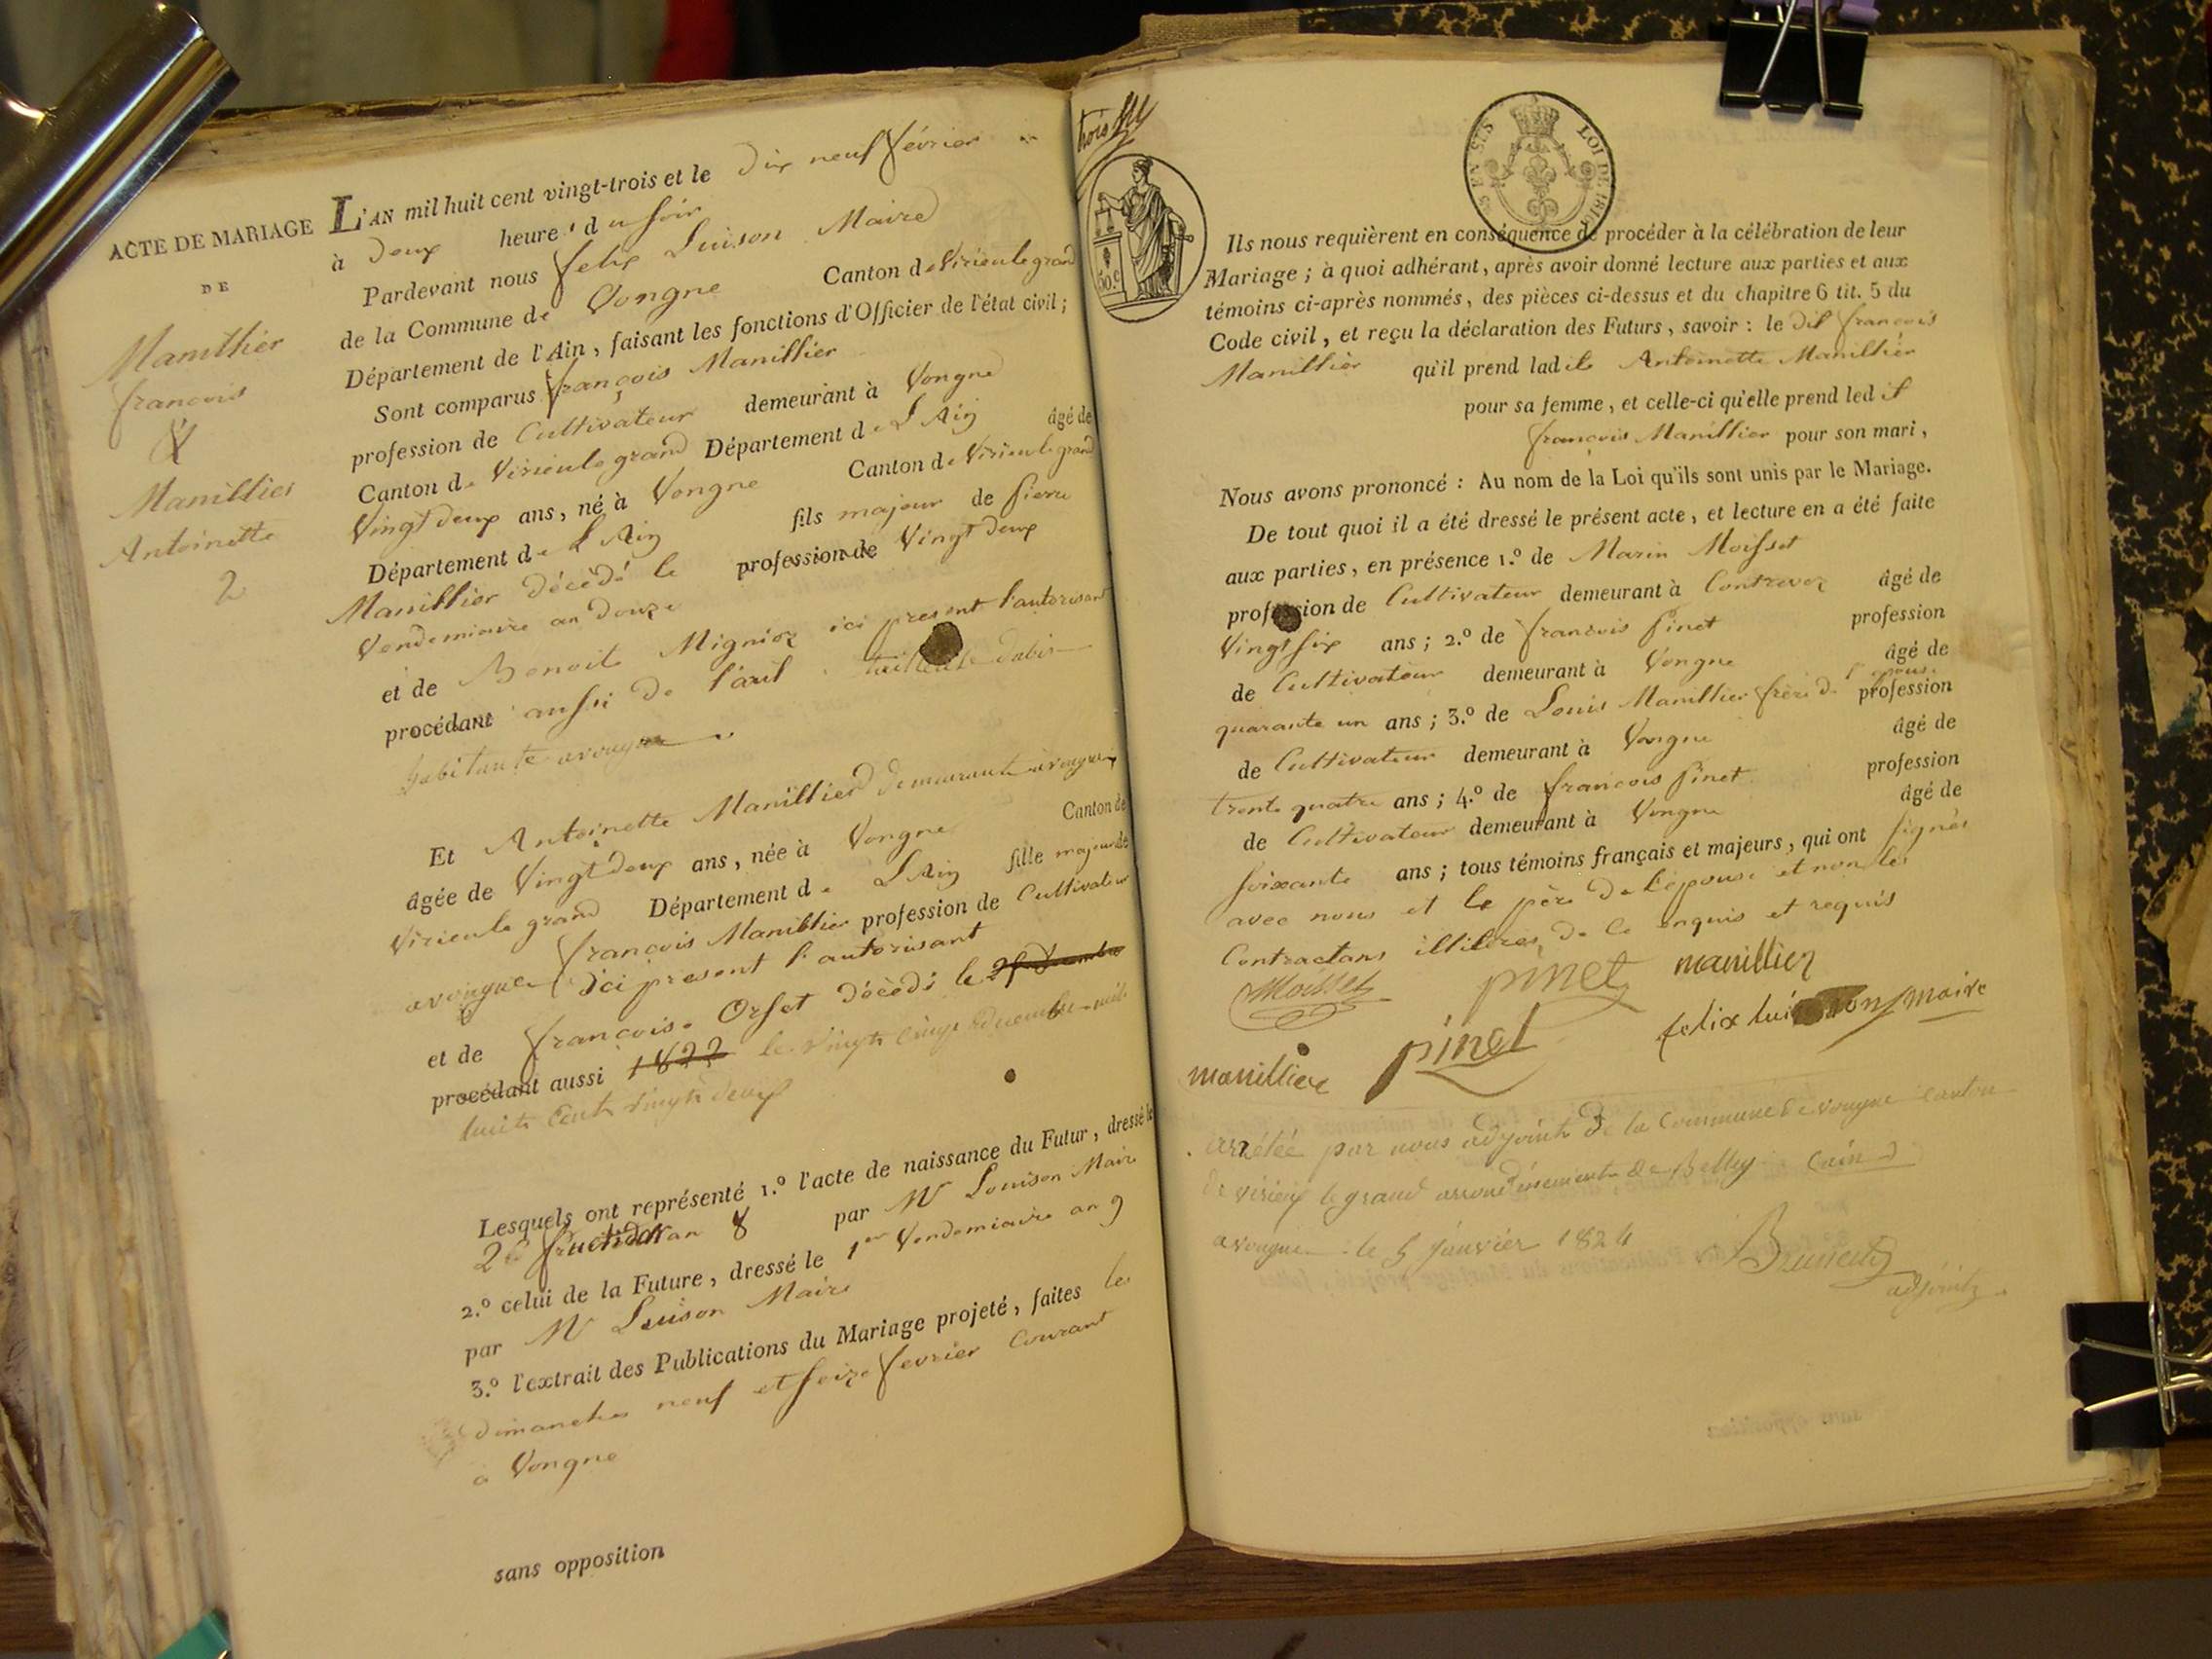 ACTE DE MARIAGE
DE
Manillier
françois
&
Manillier
Antoinette
2
L'AN mil huit cent vingt-trois et le Dix neuf février
à Deux heures du soir
Pardevant nous felix Luison Maire
de la Commune de Vongne Canton de Virieu le grand
Département de l'Ain, faisant les fonctions d'Officier de l'état civil;
Sont comparus françois Manillier
profession de Cultivateur demeurant à Vongne
Canton de Virieu le grand Département de L'Ain âgé de
Vingt deux ans, né à Vongne Canton de Virieu le grand
Département de L'Ain fils majeur de pierre
Manillier décédé le profession de Vingt deux
Vendemiaire an douze
et de Benoite Mignioz ici present l'autorisant
procédant aussi de l'avit
habitante a vongne
Et Antoinette Manillier demeurante a vongne
âgée de Vingt deux ans, née à Vongne Canton de
Virieu le grand Département de L'Ain fille majeur de
françois Manillier profession de Cultivateur
a vongne ici present l'autorisant
et de françoise Orset décédé le
procédant aussi 1822 le vingt cinq decembre mil
huit cent vingt deux
Lesquels ont représenté 1.º l'acte de naissance du Futur, dressé le
fructidor an 8 par Mr Louison Maire
2.º celui de la Future, dressé le 1er Vendemiaire an 9
par Mr Luison Maire
3.º l'extrait des Publications du Mariage projeté, faites les
dimanches neuf et seize fevrier Courant
a Vongne
sans opposition
trois
50.c
LOI DE
Ils nous requièrent en conséquence de procéder à la célébration de leur
Mariage; à quoi adhérant, après avoir donné lecture aux parties et aux
témoins ci-après nommés, des pièces ci-dessus et du chapitre 6 tit. 5 du
Code civil, et reçu la déclaration des Futurs, savoir: le dit françois
Manillier qu'il prend ladite Antoinette Manillier
pour sa femme, et celle-ci qu'elle prend ledit
françois Manillier pour son mari,
Nous avons prononcé: Au nom de la Loi qu'ils sont unis par le Mariage.
De tout quoi il a été dressé le présent acte, et lecture en a été faite
aux parties, en présence 1.º de Marin Moisset
profession de Cultivateur demeurant à Contrevoz âgé de
Vingt six ans; 2.º de françois pinet profession
de Cultivateur demeurant à Vongne âgé de
quarante un ans; 3.º de Louis Manillier frère de l'épouse profession
de Cultivateur demeurant à Vongne âgé de
trente quatre ans; 4.º de françois pinet profession
de Cultivateur demeurant à Vongne âgé de
soixante ans; tous témoins français et majeurs, qui ont signés
avec nous et le père de l'épouse et non les
Contractans illiterés de ce enquis et requis
Moisset pinet manillier
manillier pinet felix luison maire
arrêtée par nous adjoint de la Commune de vongne canton
de virieu le grand arrondissement de Belley (ain)
a vongne le 5 janvier 1824
adjoint